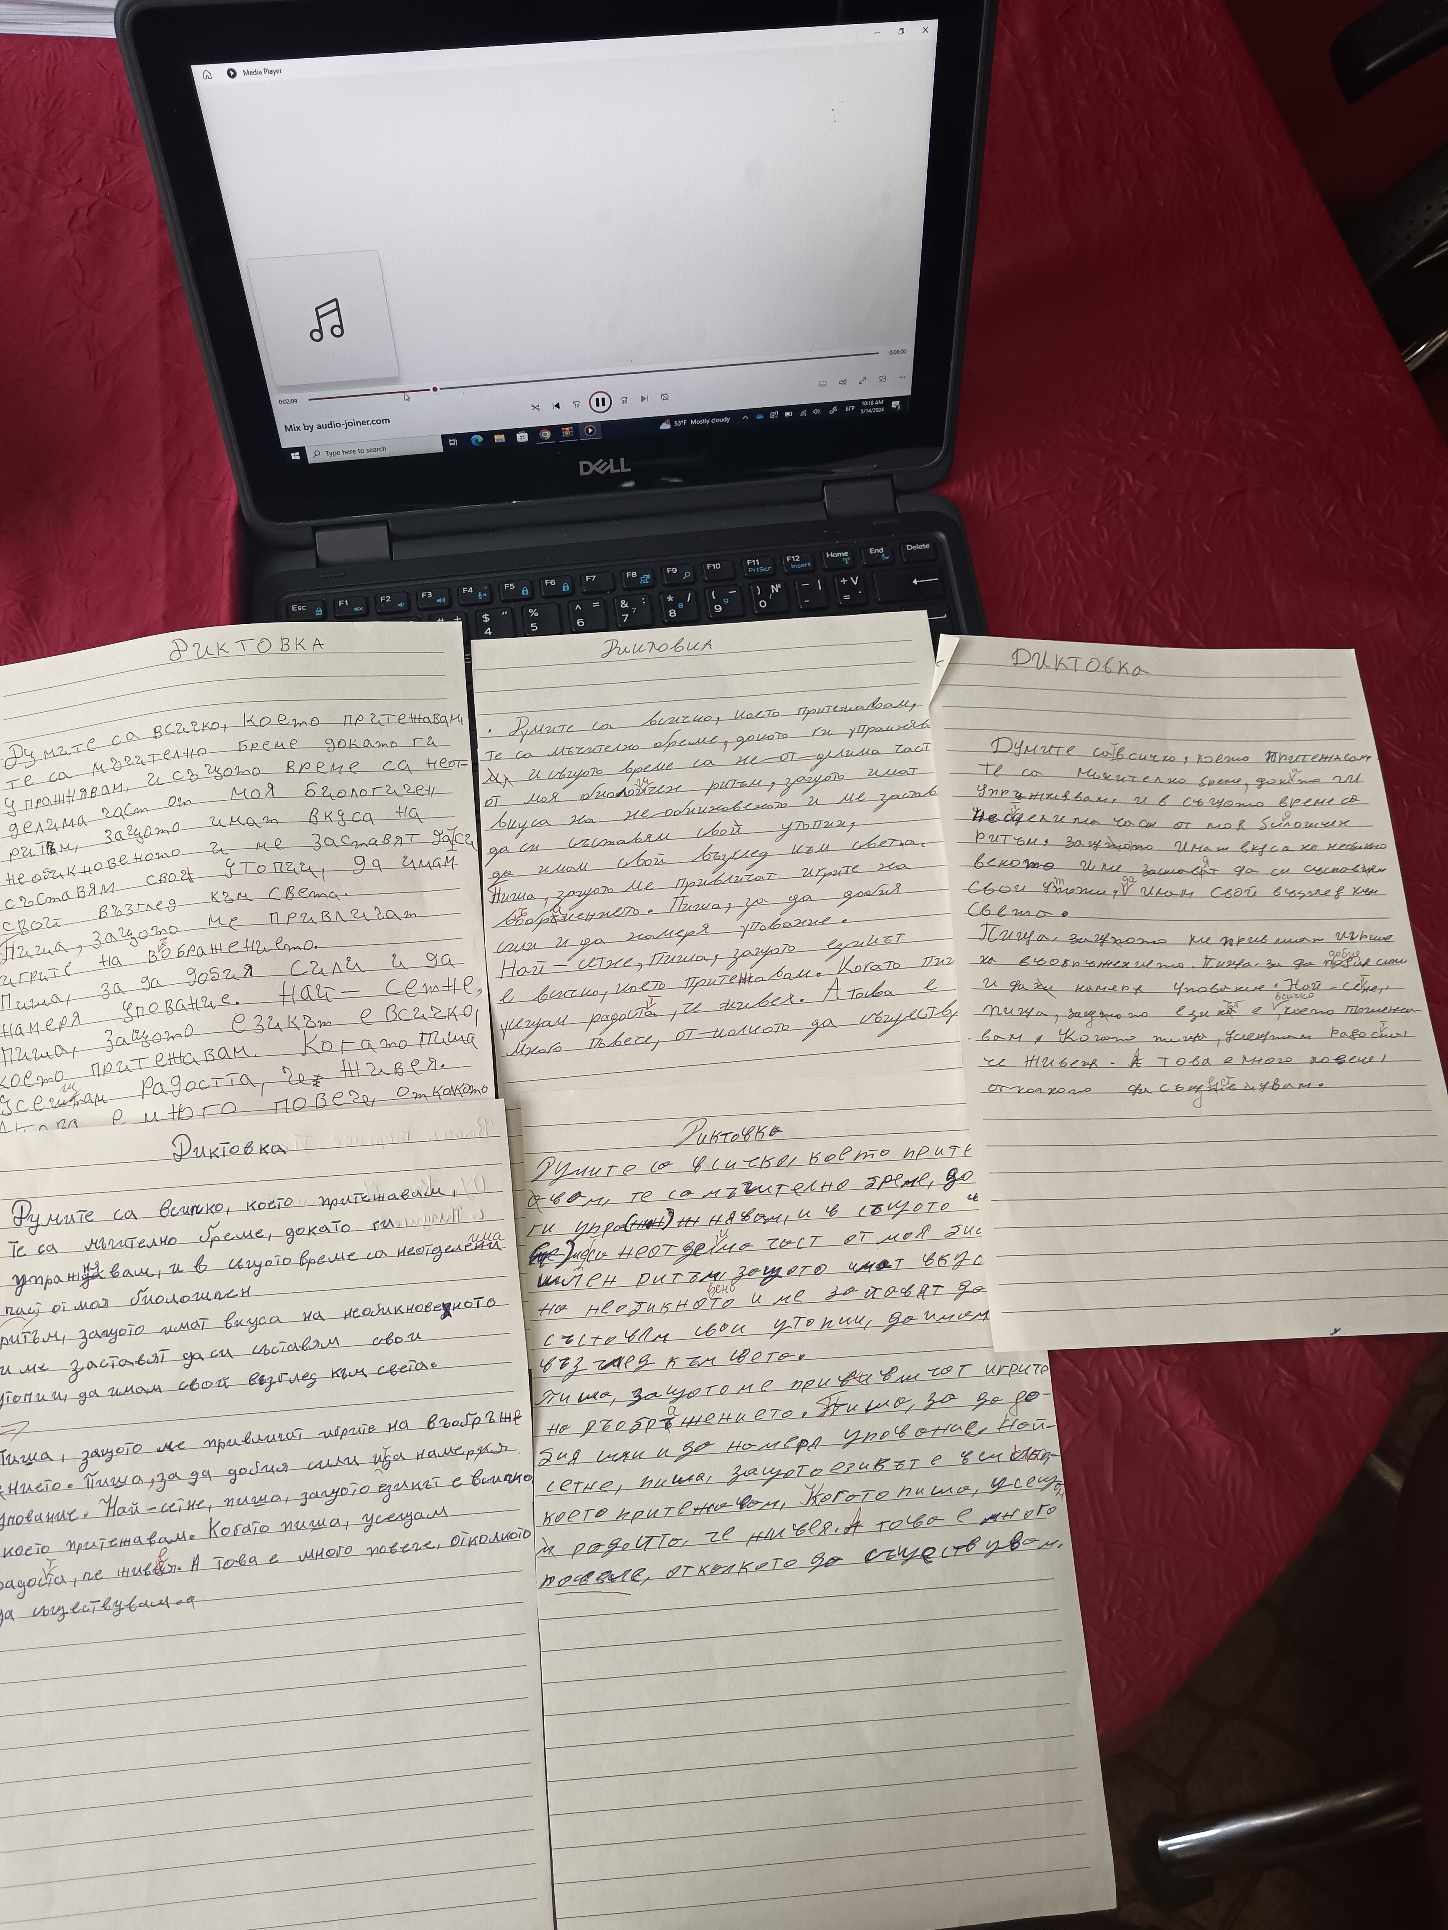 Media Player
0:02:09
0:06:00
Mix by audio-joiner.com
Type here to search
53°F Mostly cloudy
БГР
10:18 AM
5/14/2024
DELL
Esc F1 F2 F3 F4 F5 F6 F7 F8 F9 F10 F11 PrtScr F12 Insert Home End Delete
$ 4 % 5 6 & 7 * 8 ( 9 ) № 0
ДИКТОВКА
Думите са всичко, което притежавам,
те са мъчително бреме докато ги
упражнявам, и същото време са неот-
делима част от моя биологичен
ритъм, защото имат вкуса на
необикновеното и ме заставят да си
съставям свои утопии, да имам
свой възглед към света.
Пиша, защото ме привличат
игрите на въображението.
Пиша, за да добия сили и да
намеря упование. Най-сетне,
пиша, защото езикът е всичко,
което притежавам. Когато пиша
усещам радостта, че живея.
А това е много повече, отколкото
Диктовка
Думите са всичко, което притежавам,
те са мъчително бреме, докато ги упражняв
и същото време са не-от-делима част
от моя биологичен ритъм, защото имат
вкуса на не обикновеното и ме застав
да си съставям свой утопии,
да имам свой възглед към света.
Пиша, защото ме привличат игрите на
въображението. Пиша, за да добия
сили и да намеря упование.
Най-сетне, пиша, защото езикът
е всичко, което притежавам. Когато пиш
усещам радостта, че живея. А това е
много повече, от-колкото да съществу
ДИКТОВКА
Думите са всичко, което притежавам
те са мъчително бреме, докато ги
упражнявам, и в същото време са
неоделима част от моя биологичен
ритъм, защото имат вкуса на необикно
веното и ме заставят да си съставям
свои утопии, да имам свой възглед към
света.
Пиша, защото ме привличат игрите
на въображението. Пиша за да добия сили
и да намеря упование. Най-сетне,
пиша, защото езика е всичко, което
вам. Когато пиша, усещам радостта
че живея. А това е много повече,
отколкото да съществувам.
Диктовка
Думите са всичко, което притежавам,
те са мъчително бреме, докато ги
упражнявам, и в същото време са неотделима
част от моя биологичен
ритъм, защото имат вкуса на необикновеното
и ме заставят да си съставям свои
утопии, да имам свой възглед към света.
Пиша, защото ме привличат игрите на въобръже
нието. Пиша, за да добия сили и да намеря
упование. Най-сетне, пиша, защото езикът е всичко
което притежавам. Когато пиша, усещам
радостта, че живея. А това е много повече, отколкото
да съществувам.
Диктовка
Думите са всичко, което прите
авам, те са мъчително бреме, до
ги упражнявам, и в същото
са неотделима част от моя би
ичен ритъм, защото имат вкус
на необикновеното и ме заставят да
съставям свои утопии, да имам
възглед към света.
Пиша, защото ме привличат игрите
на въображението. Пиша, за да до-
бия сили и да намеря упование. Най-
сетне, пиша, защото езикът е
което притежавам. Когато пиша, усещ
м радостта, че живея. А това е много
повече, отколкото да съществувам.